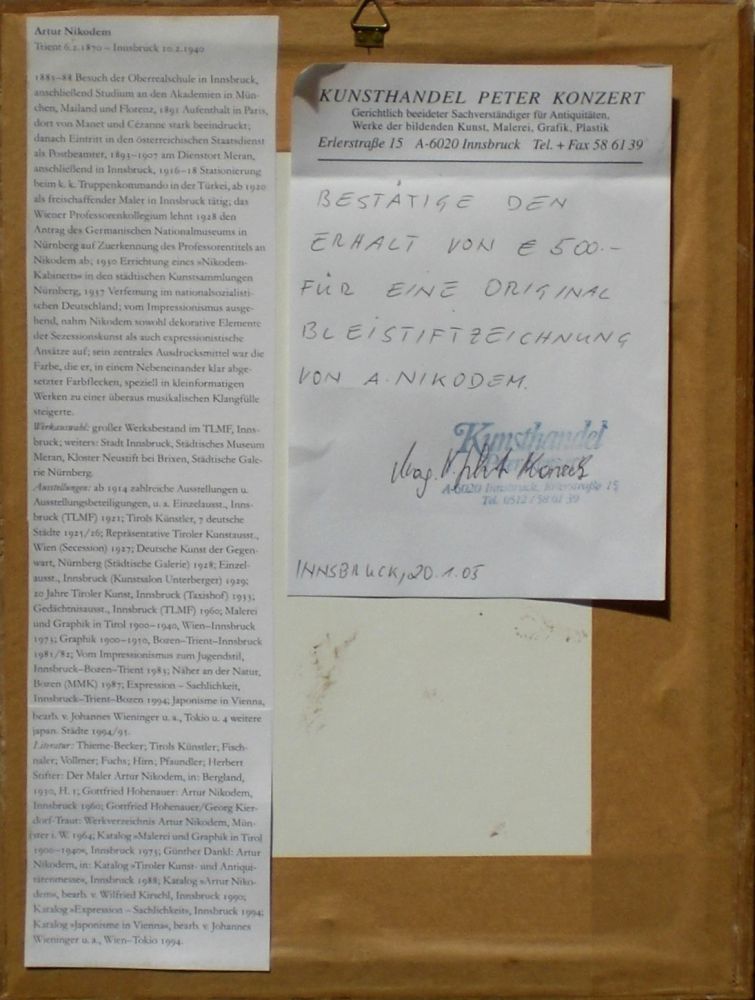 Artur Nikodem
Trient 6.2.1870 – Innsbruck 10.2.1940
1885–88 Besuch der Oberrealschule in Innsbruck,
anschließend Studium an den Akademien in Mün-
chen, Mailand und Florenz, 1891 Aufenthalt in Paris,
dort von Manet und Cézanne stark beeindruckt;
danach Eintritt in den österreichischen Staatsdienst
als Postbeamter, 1893–1907 am Dienstort Meran,
anschließend in Innsbruck, 1916–18 Stationierung
beim k. k. Truppenkommando in der Türkei, ab 1920
als freischaffender Maler in Innsbruck tätig; das
Wiener Professorenkollegium lehnt 1928 den
Antrag des Germanischen Nationalmuseums in
Nürnberg auf Zuerkennung des Professorentitels an
Nikodem ab; 1930 Errichtung eines »Nikodem-
Kabinetts« in den städtischen Kunstsammlungen
Nürnberg, 1937 Verfemung im nationalsozialisti-
schen Deutschland; vom Impressionismus ausge-
hend, nahm Nikodem sowohl dekorative Elemente
der Sezessionskunst als auch expressionistische
Ansätze auf; sein zentrales Ausdrucksmittel war die
Farbe, die er, in einem Nebeneinander klar abge-
setzter Farbflecken, speziell in kleinformatigen
Werken zu einer überaus musikalischen Klangfülle
steigerte.
Werkauswahl: großer Werksbestand im TLMF, Inns-
bruck; weiters: Stadt Innsbruck, Städtisches Museum
Meran, Kloster Neustift bei Brixen, Städtische Gale-
rie Nürnberg.
Ausstellungen: ab 1914 zahlreiche Ausstellungen u.
Ausstellungsbeteiligungen, u. a. Einzelausst., Inns-
bruck (TLMF) 1921; Tirols Künstler, 7 deutsche
Städte 1925/26; Repräsentative Tiroler Kunstausst.,
Wien (Secession) 1927; Deutsche Kunst der Gegen-
wart, Nürnberg (Städtische Galerie) 1928; Einzel-
ausst., Innsbruck (Kunstsalon Unterberger) 1929;
20 Jahre Tiroler Kunst, Innsbruck (Taxishof) 1933;
Gedächtnisausst., Innsbruck (TLMF) 1960; Malerei
und Graphik in Tirol 1900–1940, Wien–Innsbruck
1973; Graphik 1900–1950, Bozen–Trient–Innsbruck
1981/82; Vom Impressionismus zum Jugendstil,
Innsbruck–Bozen–Trient 1983; Näher an der Natur,
Bozen (MMK) 1987; Expression – Sachlichkeit,
Innsbruck–Trient–Bozen 1994; Japonisme in Vienna,
bearb. v. Johannes Wieninger u. a., Tokio u. 4 weitere
japan. Städte 1994/95.
Literatur: Thieme-Becker; Tirols Künstler; Fisch-
naler; Vollmer; Fuchs; Hirn; Pfaundler; Herbert
Stifter: Der Maler Artur Nikodem, in: Bergland,
1930, H. 1; Gottfried Hohenauer: Artur Nikodem,
Innsbruck 1960; Gottfried Hohenauer/Georg Kier-
dorf-Traut: Werkverzeichnis Artur Nikodem, Mün-
ster i. W. 1964; Katalog »Malerei und Graphik in Tirol
1900–1940«, Innsbruck 1973; Günther Dankl: Artur
Nikodem, in: Katalog »Tiroler Kunst- und Antiqui-
tätenmesse«, Innsbruck 1988; Katalog »Artur Niko-
dem«, bearb. v. Wilfried Kirschl, Innsbruck 1990;
Katalog »Expression – Sachlichkeit«, Innsbruck 1994;
Katalog »Japonisme in Vienna«, bearb. v. Johannes
Wieninger u. a., Wien–Tokio 1994.
KUNSTHANDEL PETER KONZERT
Gerichtlich beeideter Sachverständiger für Antiquitäten,
Werke der bildenden Kunst, Malerei, Grafik, Plastik
Erlerstraße 15 A-6020 Innsbruck Tel. + Fax 58 61 39
BESTÄTIGE DEN
ERHALT VON € 500.-
FÜR EINE ORIGINAL
BLEISTIFTZEICHNUNG
VON A. NIKODEM.
Kunsthandel
Mag. Konzert
A-6020 Innsbruck, Erlerstraße 15
Tel. 0512 / 58 61 39
INNSBRUCK, 20.1.05